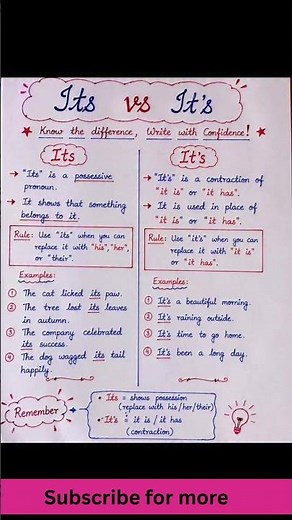 Its vs It's
★ Know the difference, Write with Confidence! ★
Its
→ "Its" is a possessive
pronoun.
→ It shows that something
belongs to it.
Rule: Use "its" when you can
replace it with "his", "her",
or "their".
Examples:
① The cat licked its paw.
② The tree lost its leaves
in autumn.
③ The company celebrated
its success.
④ The dog wagged its tail
happily.
It's
→ "It's" is a contraction of
"it is" or "it has".
→ It is used in place of
"it is" or "it has".
Rule: Use "it's" when you can
replace it with "it is"
or "it has".
Examples:
① It's a beautiful morning.
② It's raining outside.
③ It's time to go home.
④ It's been a long day.
Remember
• Its = shows possession
(replace with his/her/their)
• It's = it is / it has
(contraction)
Subscribe for more